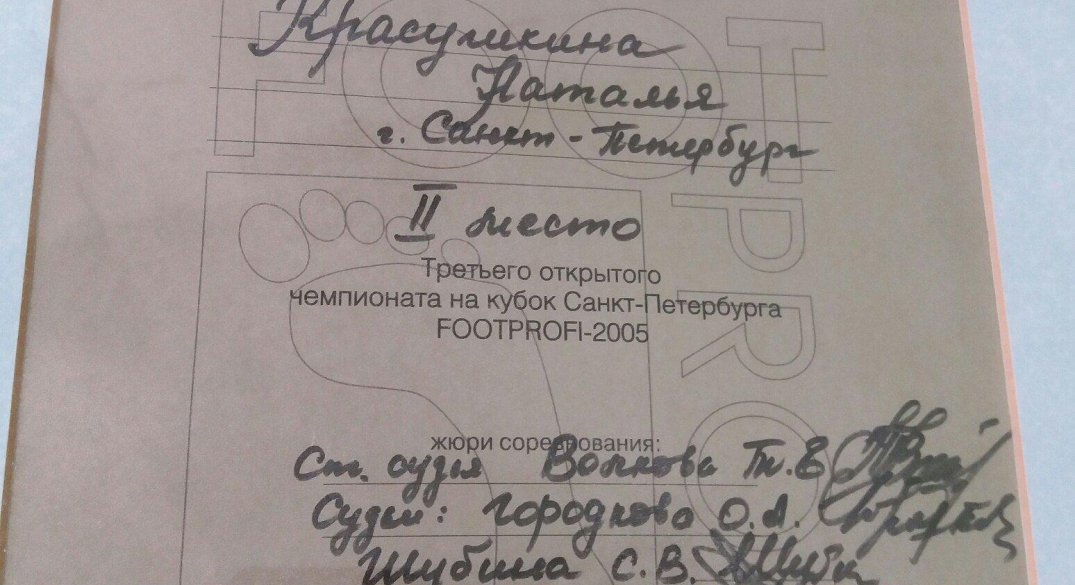 Красушкина
Наталья
г. Санкт-Петербург
II место
Третьего открытого
чемпионата на кубок Санкт-Петербурга
FOOTPROFI-2005
жюри соревнования:
Ст. судья Волкова Т.В.
Судьи: Городкова О.А.
Шубина С.В.
FOOTPRO